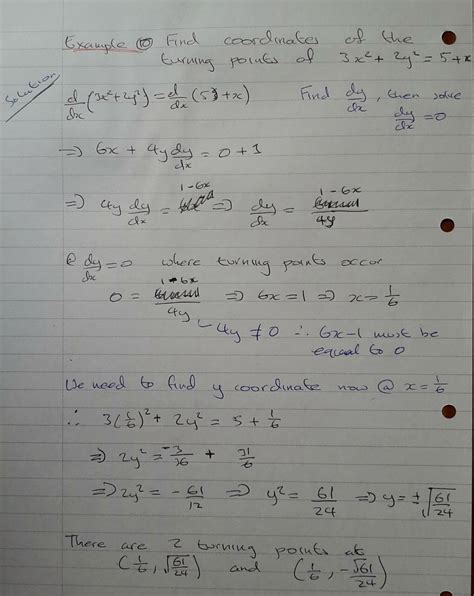 Example ⑩ Find coordinates of the
turning points of 3x² + 2y² = 5 + x
Solution
d/dx (3x² + 2y²) = d/dx (5 + x) Find dy/dx, then solve
dy/dx = 0
⇒ 6x + 4y dy/dx = 0 + 1
⇒ 4y dy/dx = 1 - 6x ⇒ dy/dx = (1 - 6x)/4y
@ dy/dx = 0 where turning points occur
0 = (1 - 6x)/4y ⇒ 6x = 1 ⇒ x = 1/6
4y ≠ 0 ∴ 6x - 1 must be
equal to 0
We need to find y coordinate now @ x = 1/6
∴ 3(1/6)² + 2y² = 5 + 1/6
⇒ 2y² = -3/36 + 31/6
⇒ 2y² = -61/12 ⇒ y² = 61/24 ⇒ y = ±√(61/24)
There are 2 turning points at
(1/6, √61/24) and (1/6, -√61/24)